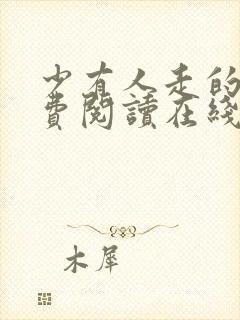 少有人走的
費閱讀在綫
木犀